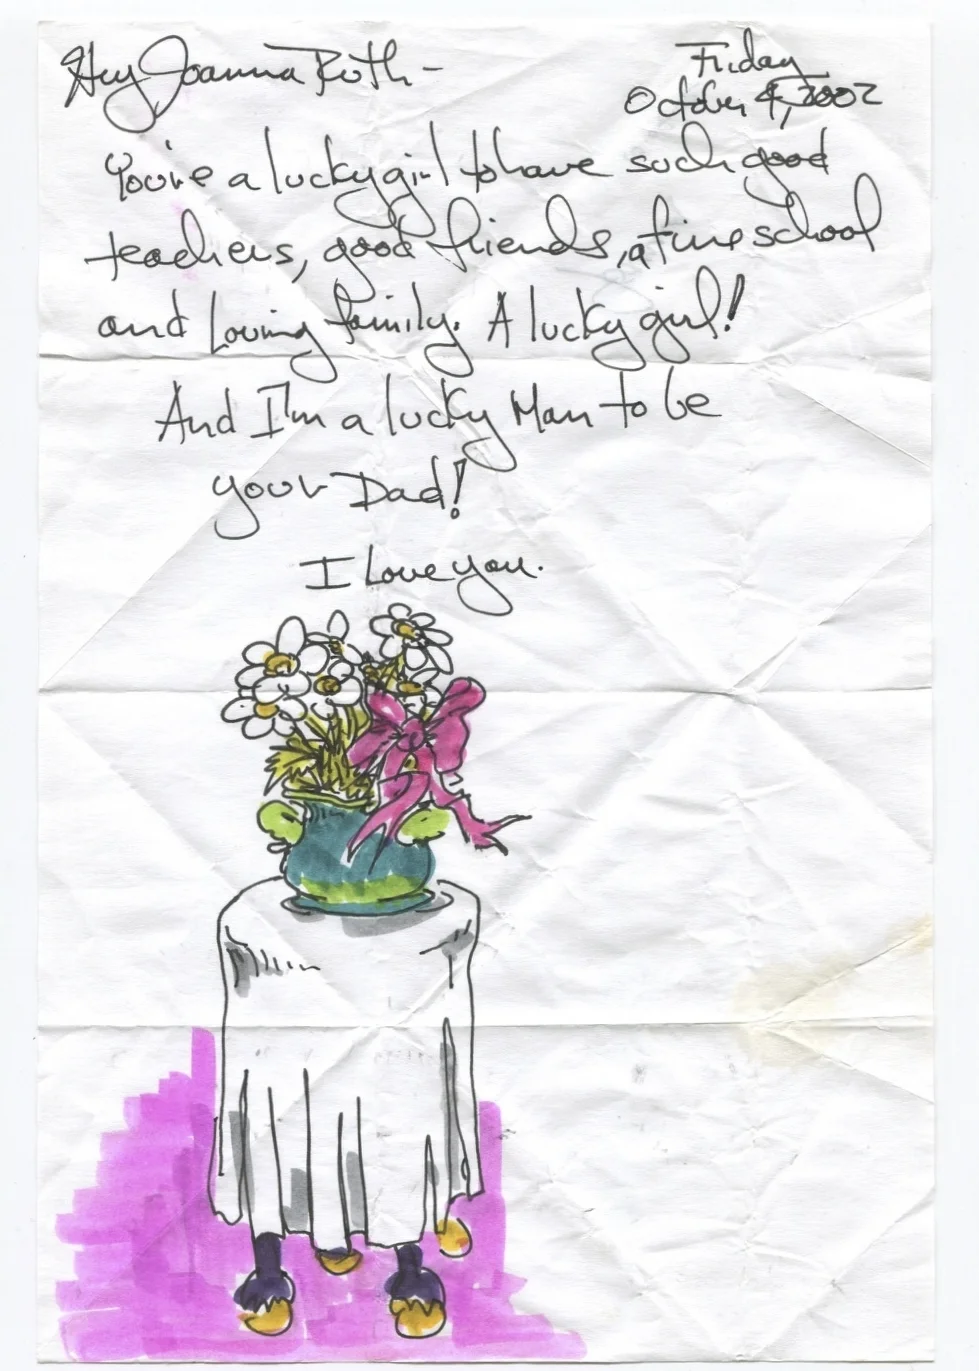 Hey Joanna Ruth -
Friday
October 4, 2002
You're a lucky girl to have such good
teachers, good friends, a fine school
and Loving family. A lucky girl!
And I'm a lucky Man to be
your Dad!
I Love you.